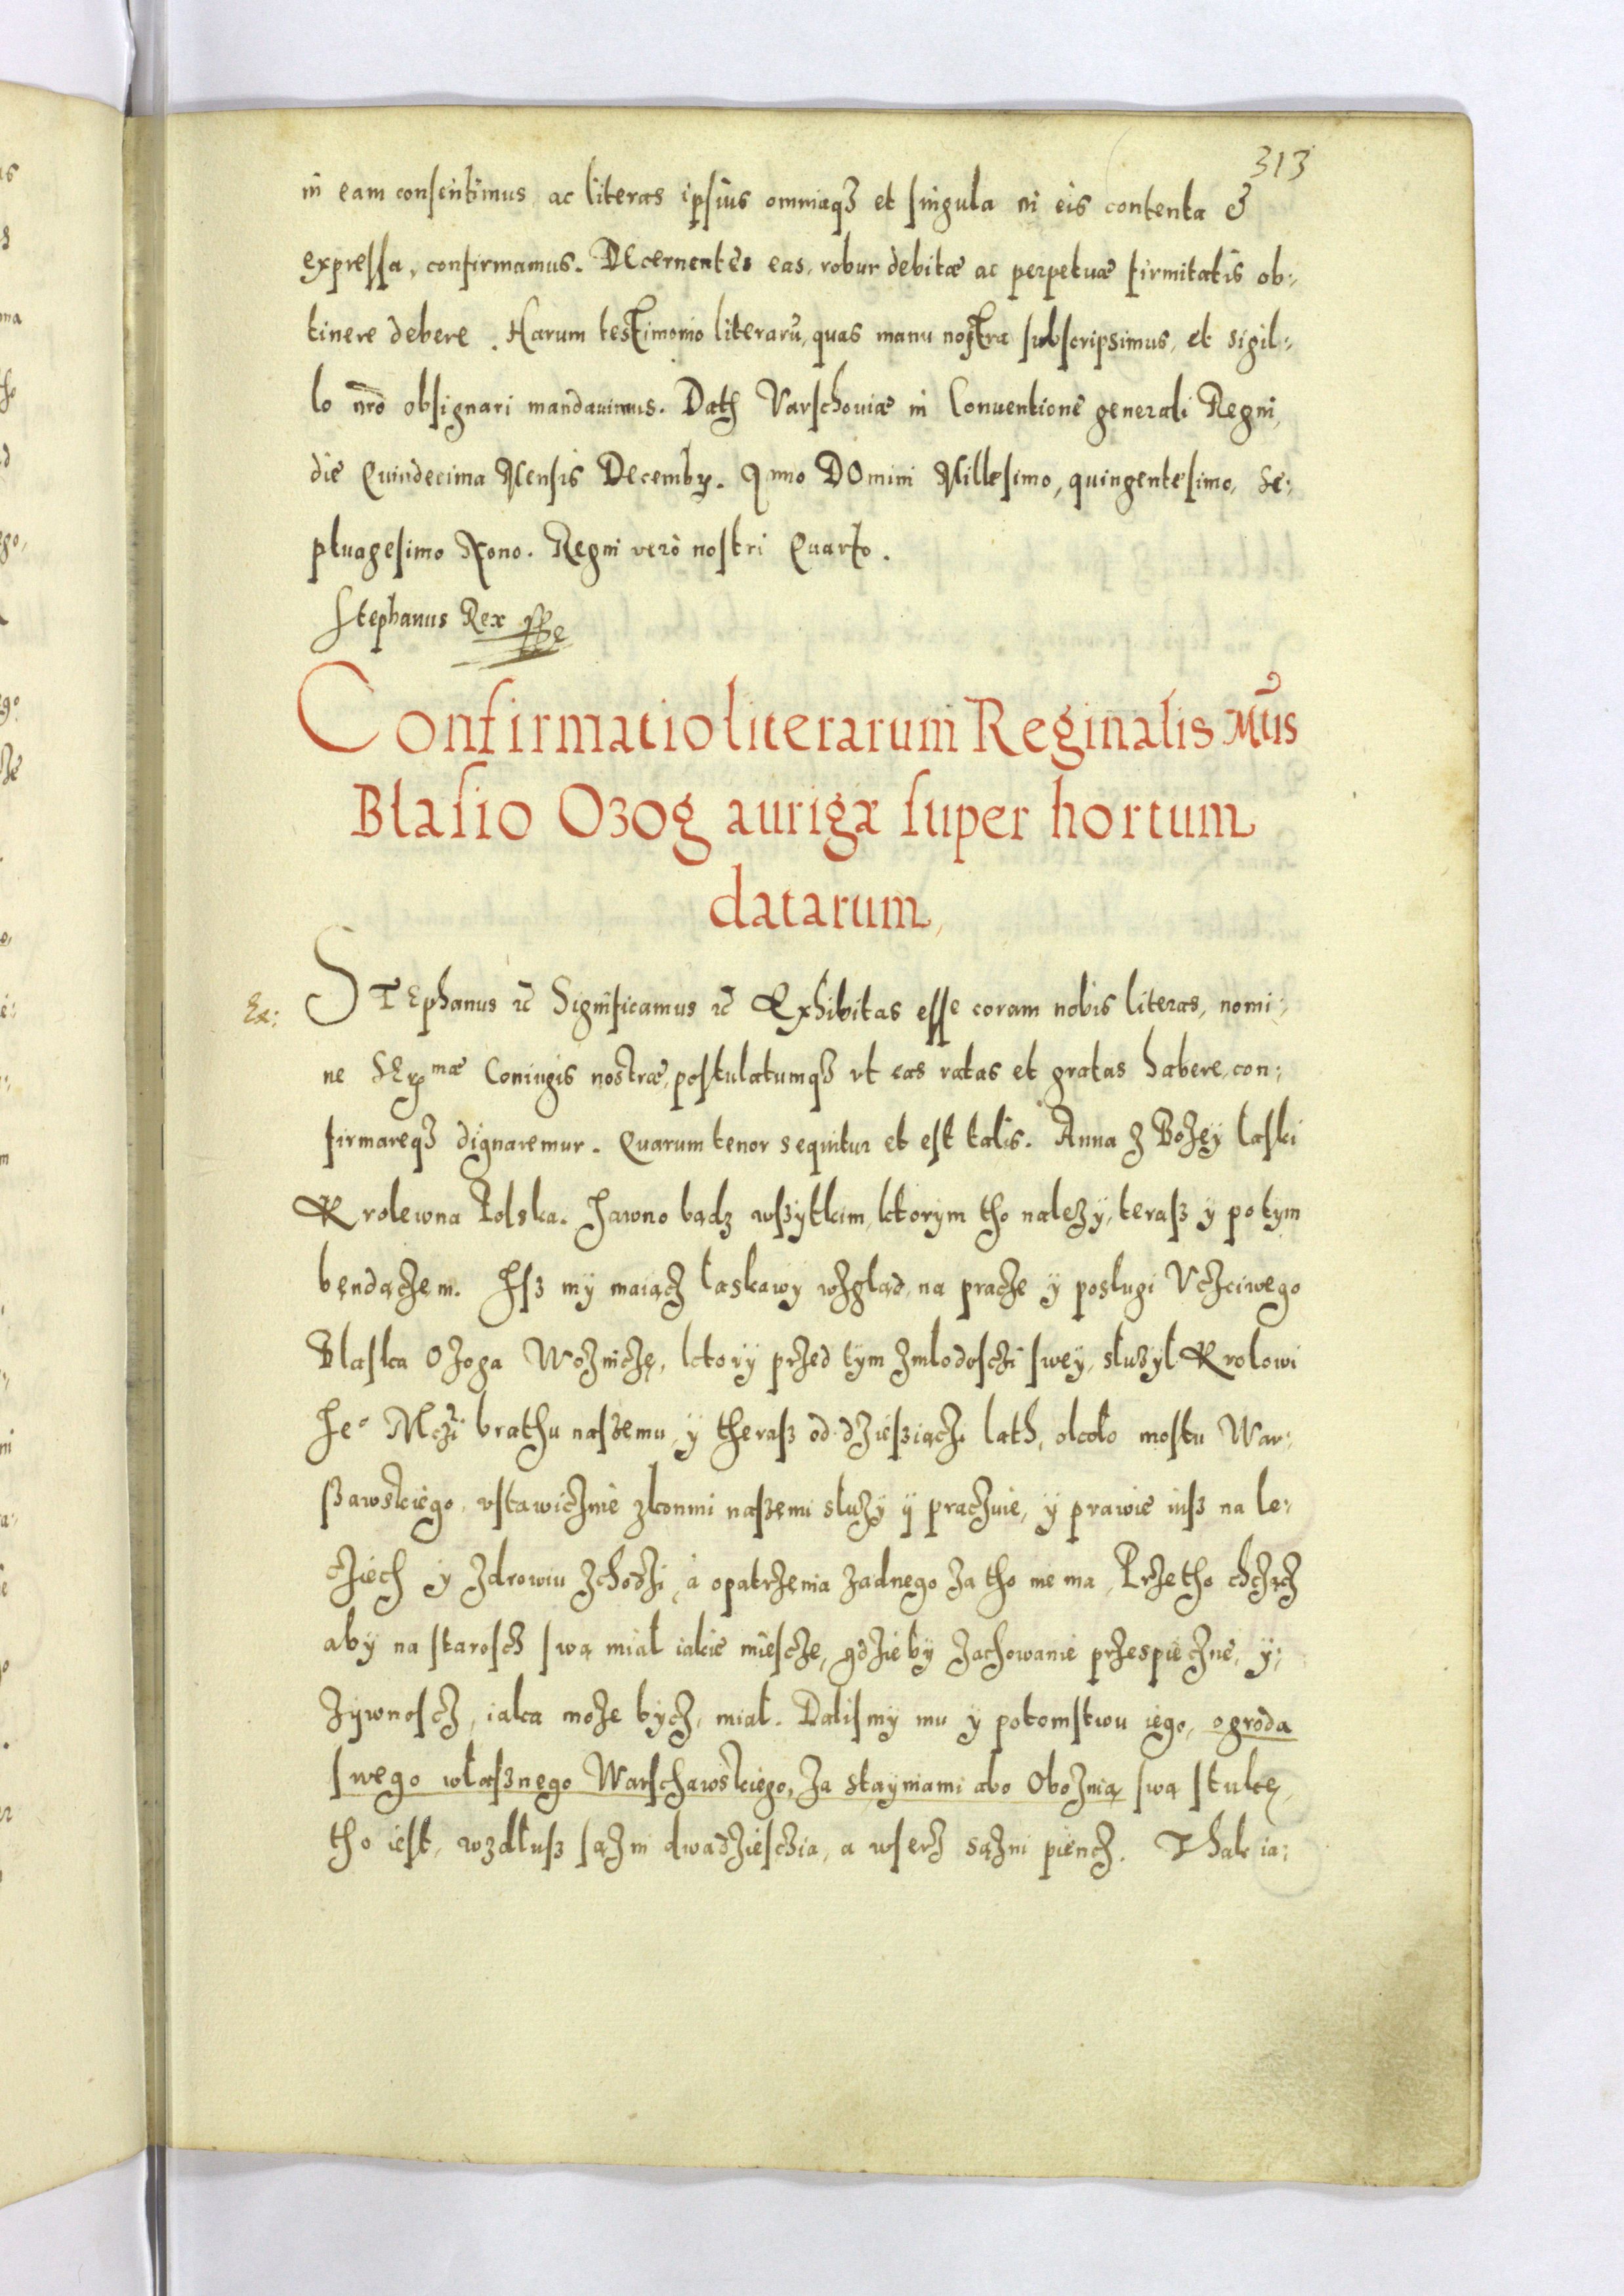 313
in eam consentimus ac literas ipsius omniaqȝ et singula in eis contenta &
expressa, confirmamus. Decernentes eas, robur debitæ ac perpetuæ firmitatis ob:
tinere debere. Harum testimonio literarū, quas manu nostra subscripsimus, et sigil:
lo nrō obsignari mandavimus. Datȝ Varschoviæ in Conventione generali Regni,
die Quindecima Mensis Decembr. Anno DOmini Millesimo, quingentesimo, se:
ptuagesimo Nono. Regni verò nostri Quarto.
Stephanus Rex
Confirmatio literarum Reginalis Mtis
Blasio Ozog aurigæ super hortum
datarum,
Ex:
STEphanus etc̄ Significamus etc̄ Exhibitas esse coram nobis literas, nomi:
ne SEr mæ Coniugis nostræ, postulatumqȝ vt eas ratas et gratas habere, con:
firmareqȝ dignaremur. Quarum tenor sequitur et est talis. Anna z Bożey łaski
Krolewna Polska. Jawno bądz wszytkim, ktorym tho nalezy, terasz y potym
bendączem. Jsz my maiącz łaskawy wzgląd, na pracze y poslugi Vcżciwego
Błaska Ożoga Wożniczę, ktory przed tym zmlodosczi swey, służył Krolowi
Je° Mczi bratu naszemu, y therasz od dzieszięczi lath, około mostu War:
szawskiego, vstawicznie zkonmi naszemi służy y praczuie, y prawie iusz na le:
cziech y zdrowiu zchodzi, a opatrzenia żadnego za tho nie ma, Przetho chcżącz
aby na starość swą miał iakie miescze, gdzieby zachowanie przespieczne, y:
żywnoscz, iaka może bycz, miał. Dalismy mu y potomstwu iego, ogroda
swego własznego Warschawskiego, za stayniami abo Obożnią swą stukę,
tho iest, wzdłusz sążni dwadziesczia, a wserz sążni piencz. Thak ia: